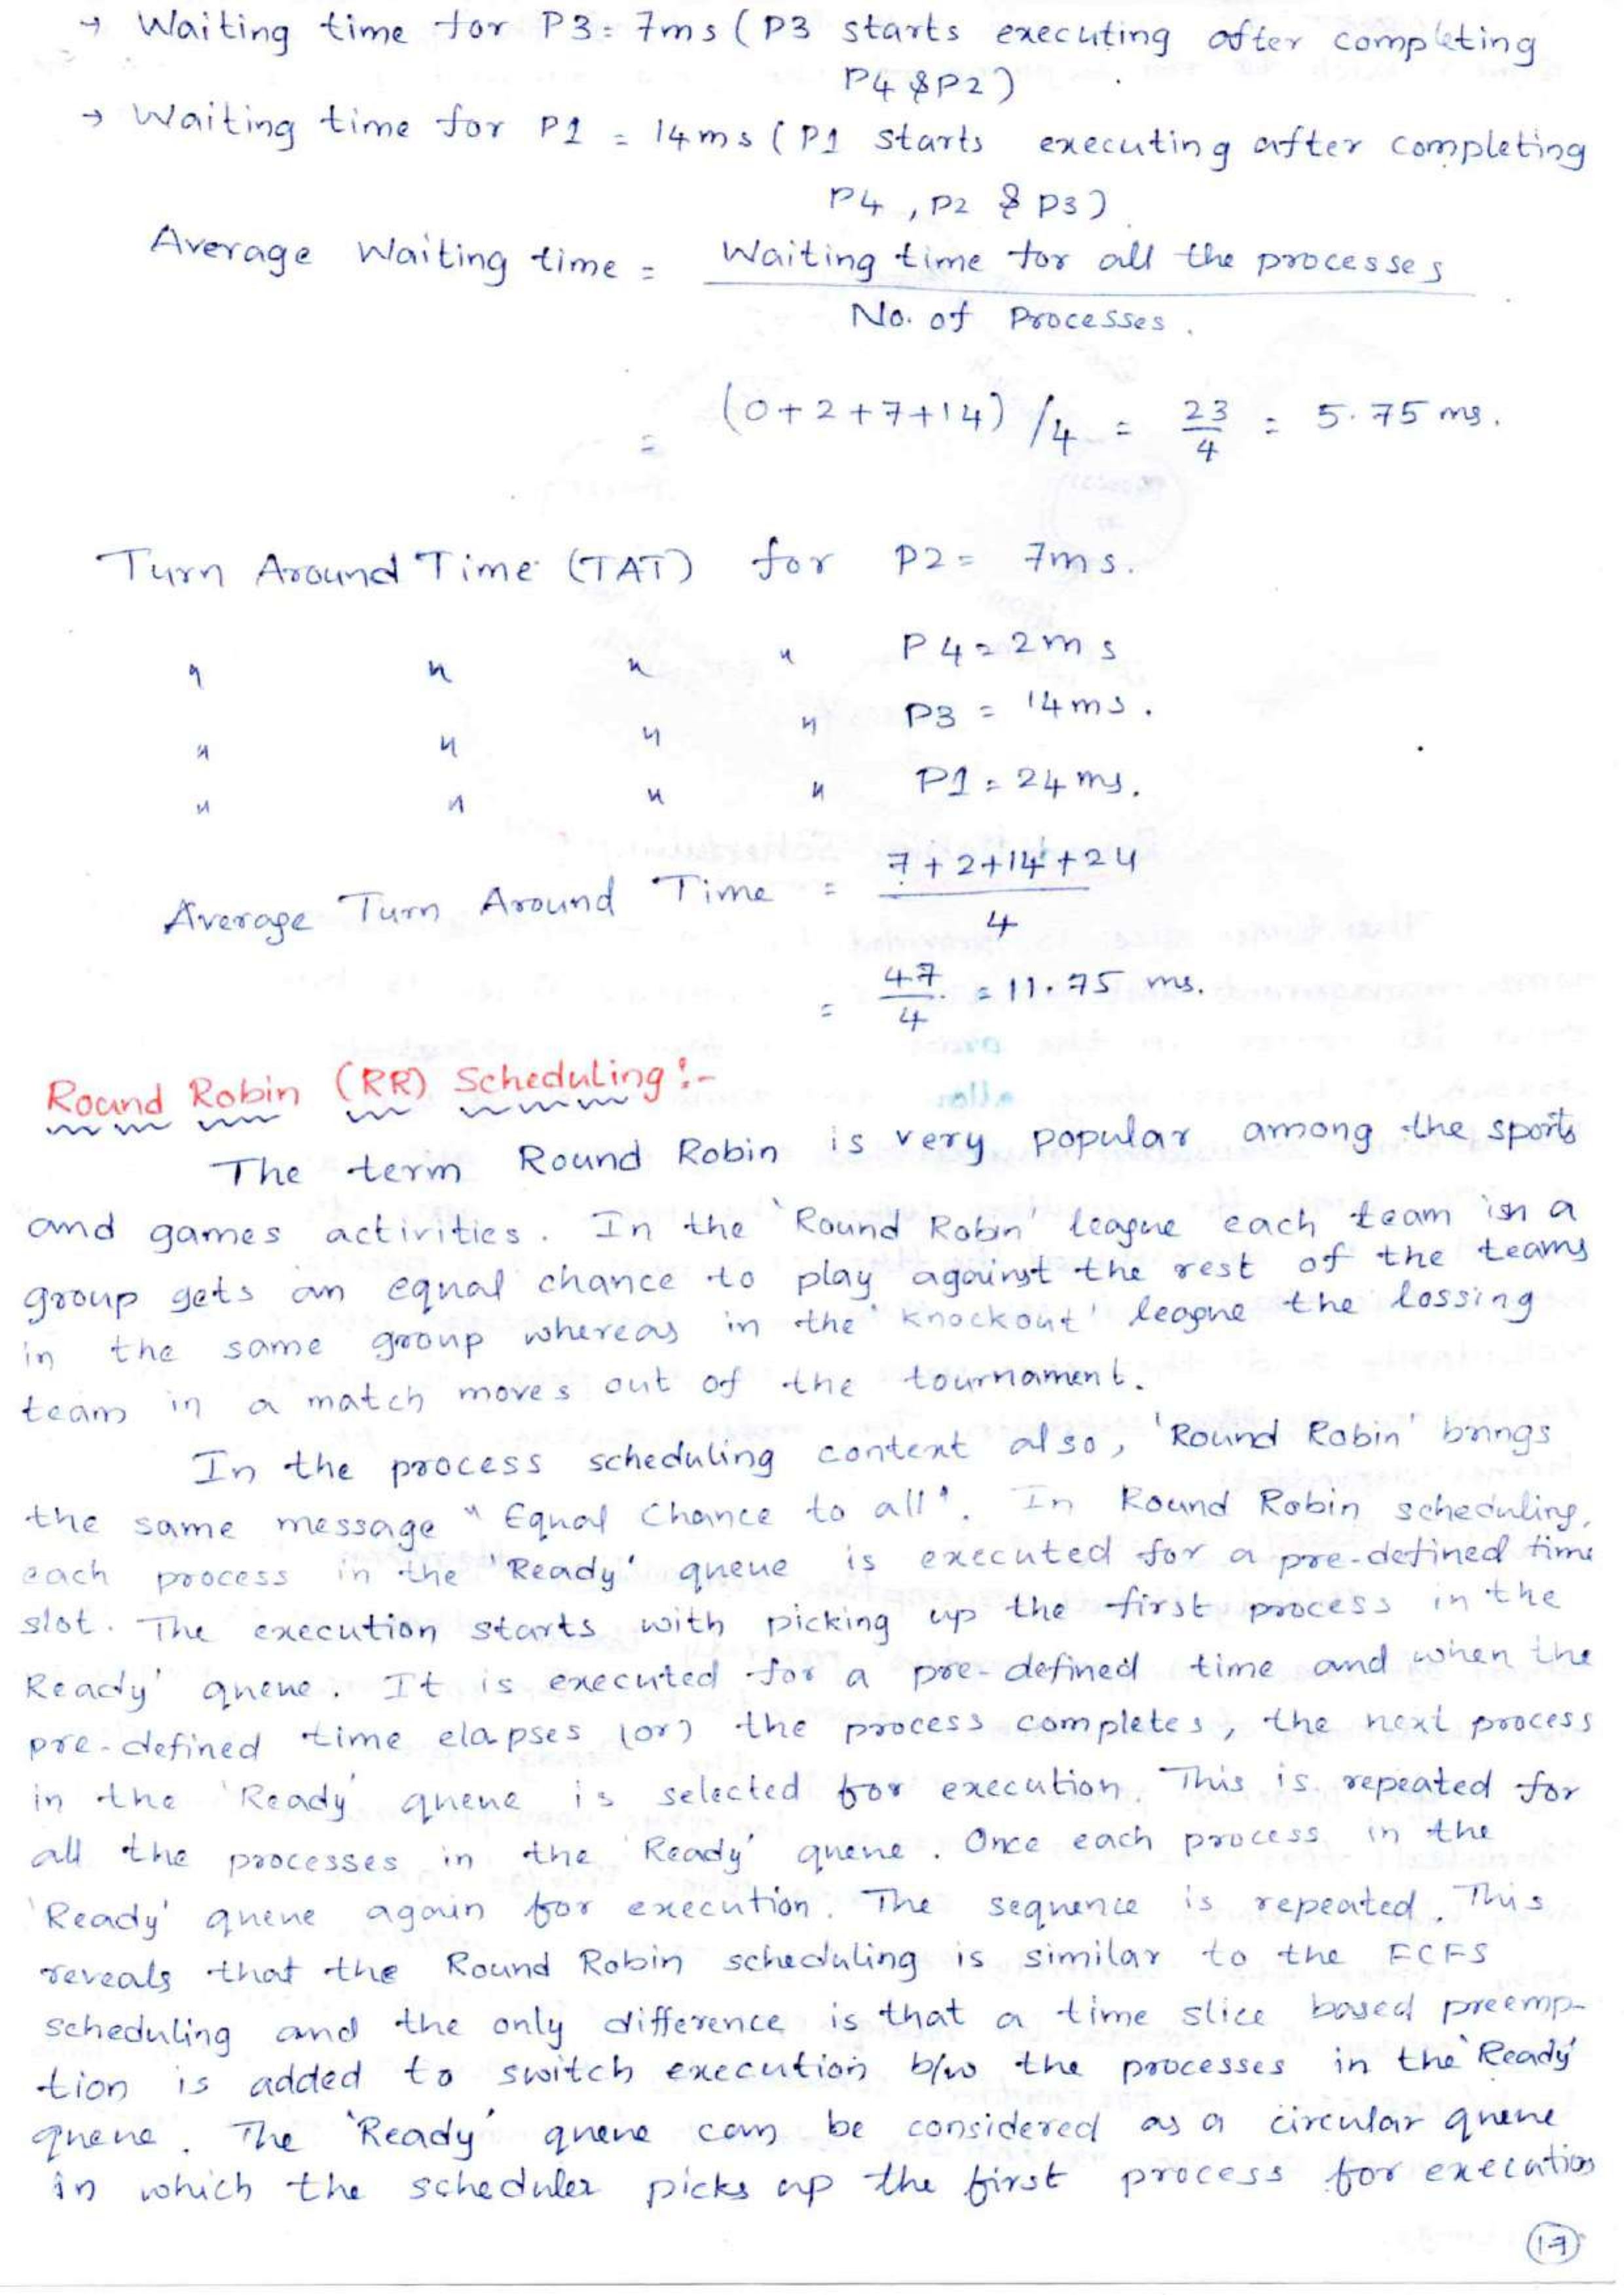 → Waiting time for P3 = 7ms ( P3 starts executing after completing
P4 & P2 )
→ Waiting time for P1 = 14ms ( P1 starts executing after completing
P4 , P2 & P3 )
Average Waiting time = Waiting time for all the processes
No. of Processes .
= (0+2+7+14) /4 = 23/4 = 5.75 ms.
Turn Around Time (TAT) for P2 = 7ms.
" " " " P4 = 2ms
" " " " P3 = 14ms.
" " " " P1 = 24ms.
Average Turn Around Time = 7+2+14+24
4
= 47/4 = 11.75 ms.
Round Robin (RR) Scheduling :-
The term Round Robin is very popular among the sports
and games activities. In the 'Round Robin' league each team in a
group gets an equal chance to play against the rest of the teams
in the same group whereas in the 'knockout' league the lossing
team in a match moves out of the tournament.
In the process scheduling context also, 'Round Robin' brings
the same message "Equal Chance to all". In Round Robin scheduling,
each process in the 'Ready' queue is executed for a pre-defined time
slot. The execution starts with picking up the first process in the
Ready' queue. It is executed for a pre-defined time and when the
pre-defined time elapses (or) the process completes, the next process
in the 'Ready' queue is selected for execution. This is repeated for
all the processes in the 'Ready' queue. Once each process in the
'Ready' queue again for execution. The sequence is repeated. This
reveals that the Round Robin scheduling is similar to the FCFS
scheduling and the only difference is that a time slice based preemp-
tion is added to switch execution b/w the processes in the 'Ready'
queue. The 'Ready' queue can be considered as a circular queue
in which the scheduler picks up the first process for execution
17